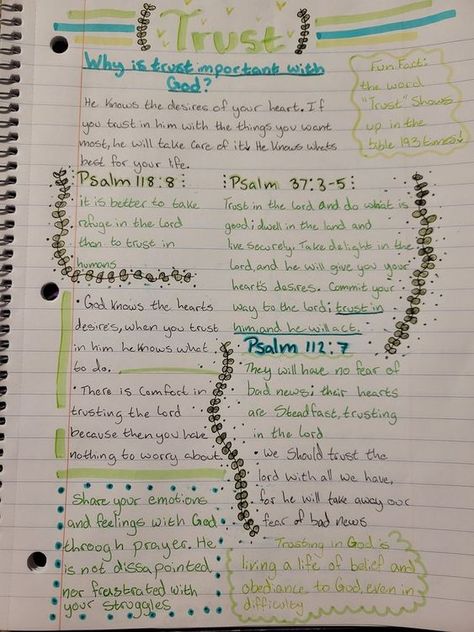 Trust
Why is trust important with
God?
He knows the desires of your heart. If
you trust in him with the things you want
most, he will take care of it! He knows whats
best for your life.
Fun Fact:
the word
"Trust" shows
up in the
bible 193 times!
Psalm 118:8
it is better to take
refuge in the Lord
than to trust in
humans
Psalm 37:3-5:
Trust in the lord and do what is
good; dwell in the land and
live securely. Take delight in the
Lord, and he will give you your
hearts desires. Commit your
way to the Lord; trust in
him, and he will act.
• God knows the hearts
desires, when you trust
in him he knows what
to do.
• There is comfort in
trusting the Lord
because then you have
nothing to worry about.
Psalm 112:7
They will have no fear of
bad news; their hearts
are steadfast, trusting
in the Lord
• we should trust the
lord with all we have,
for he will take away our
fear of bad news
Share your emotions
and feelings with God
through prayer. He
is not dissapointed
nor frustrated with
your struggles
Trusting in God is
living a life of belief and
obedience to God, even in
difficulty